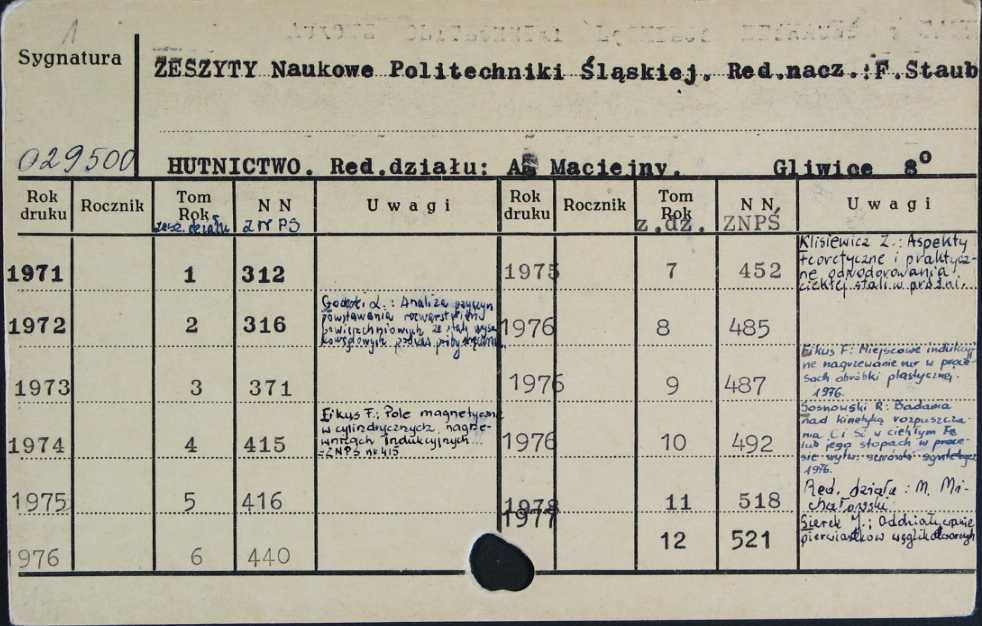 1
Sygnatura
ZESZYTY Naukowe Politechniki Śląskiej. Red.nacz.:F.Staub
029500
HUTNICTWO. Red.działu: A Maciejny. Gliwice 8°
Rok druku Rocznik Tom Rok N N U w a g i Rok druku Rocznik Tom Rok N N U w a g i
zesz. działu ZNPS z.dz. ZNPŚ
1971 1 312
1972 2 316
Analiza przyczyn
powstawania rozwarstwień
powierzchniowych ze stali wyso
kowęglowych podczas próby skręcania
1973 3 371
1974 4 415
Fikus F.: Pole magnetyczne
w cylindrycznych nagrze-
wnicach indukcyjnych...
=ZNPS nr 415
1975 5 416
1976 6 440
1975 7 452
Klisiewicz Z.: Aspekty
teoretyczne i praktycz-
ne odwodorowania
ciekłej stali w próżni.
1976 8 485
1976 9 487
Fikus F: Miejscowe indukcyj
ne nagrzewanie rur w proce-
sach obróbki plastycznej.
1976.
1976 10 492
Sosnowski R: Badania
nad kinetyką rozpuszcza
nia C i Si w ciekłym Fe
lub jego stopach w proce-
sie wytw. surówki syntetycz
1976.
1978 11 518
Red. działu: M. Mi-
chałowski
1977 12 521
Sierek J.: Oddziaływanie
pierwiastków węglikotwórczych